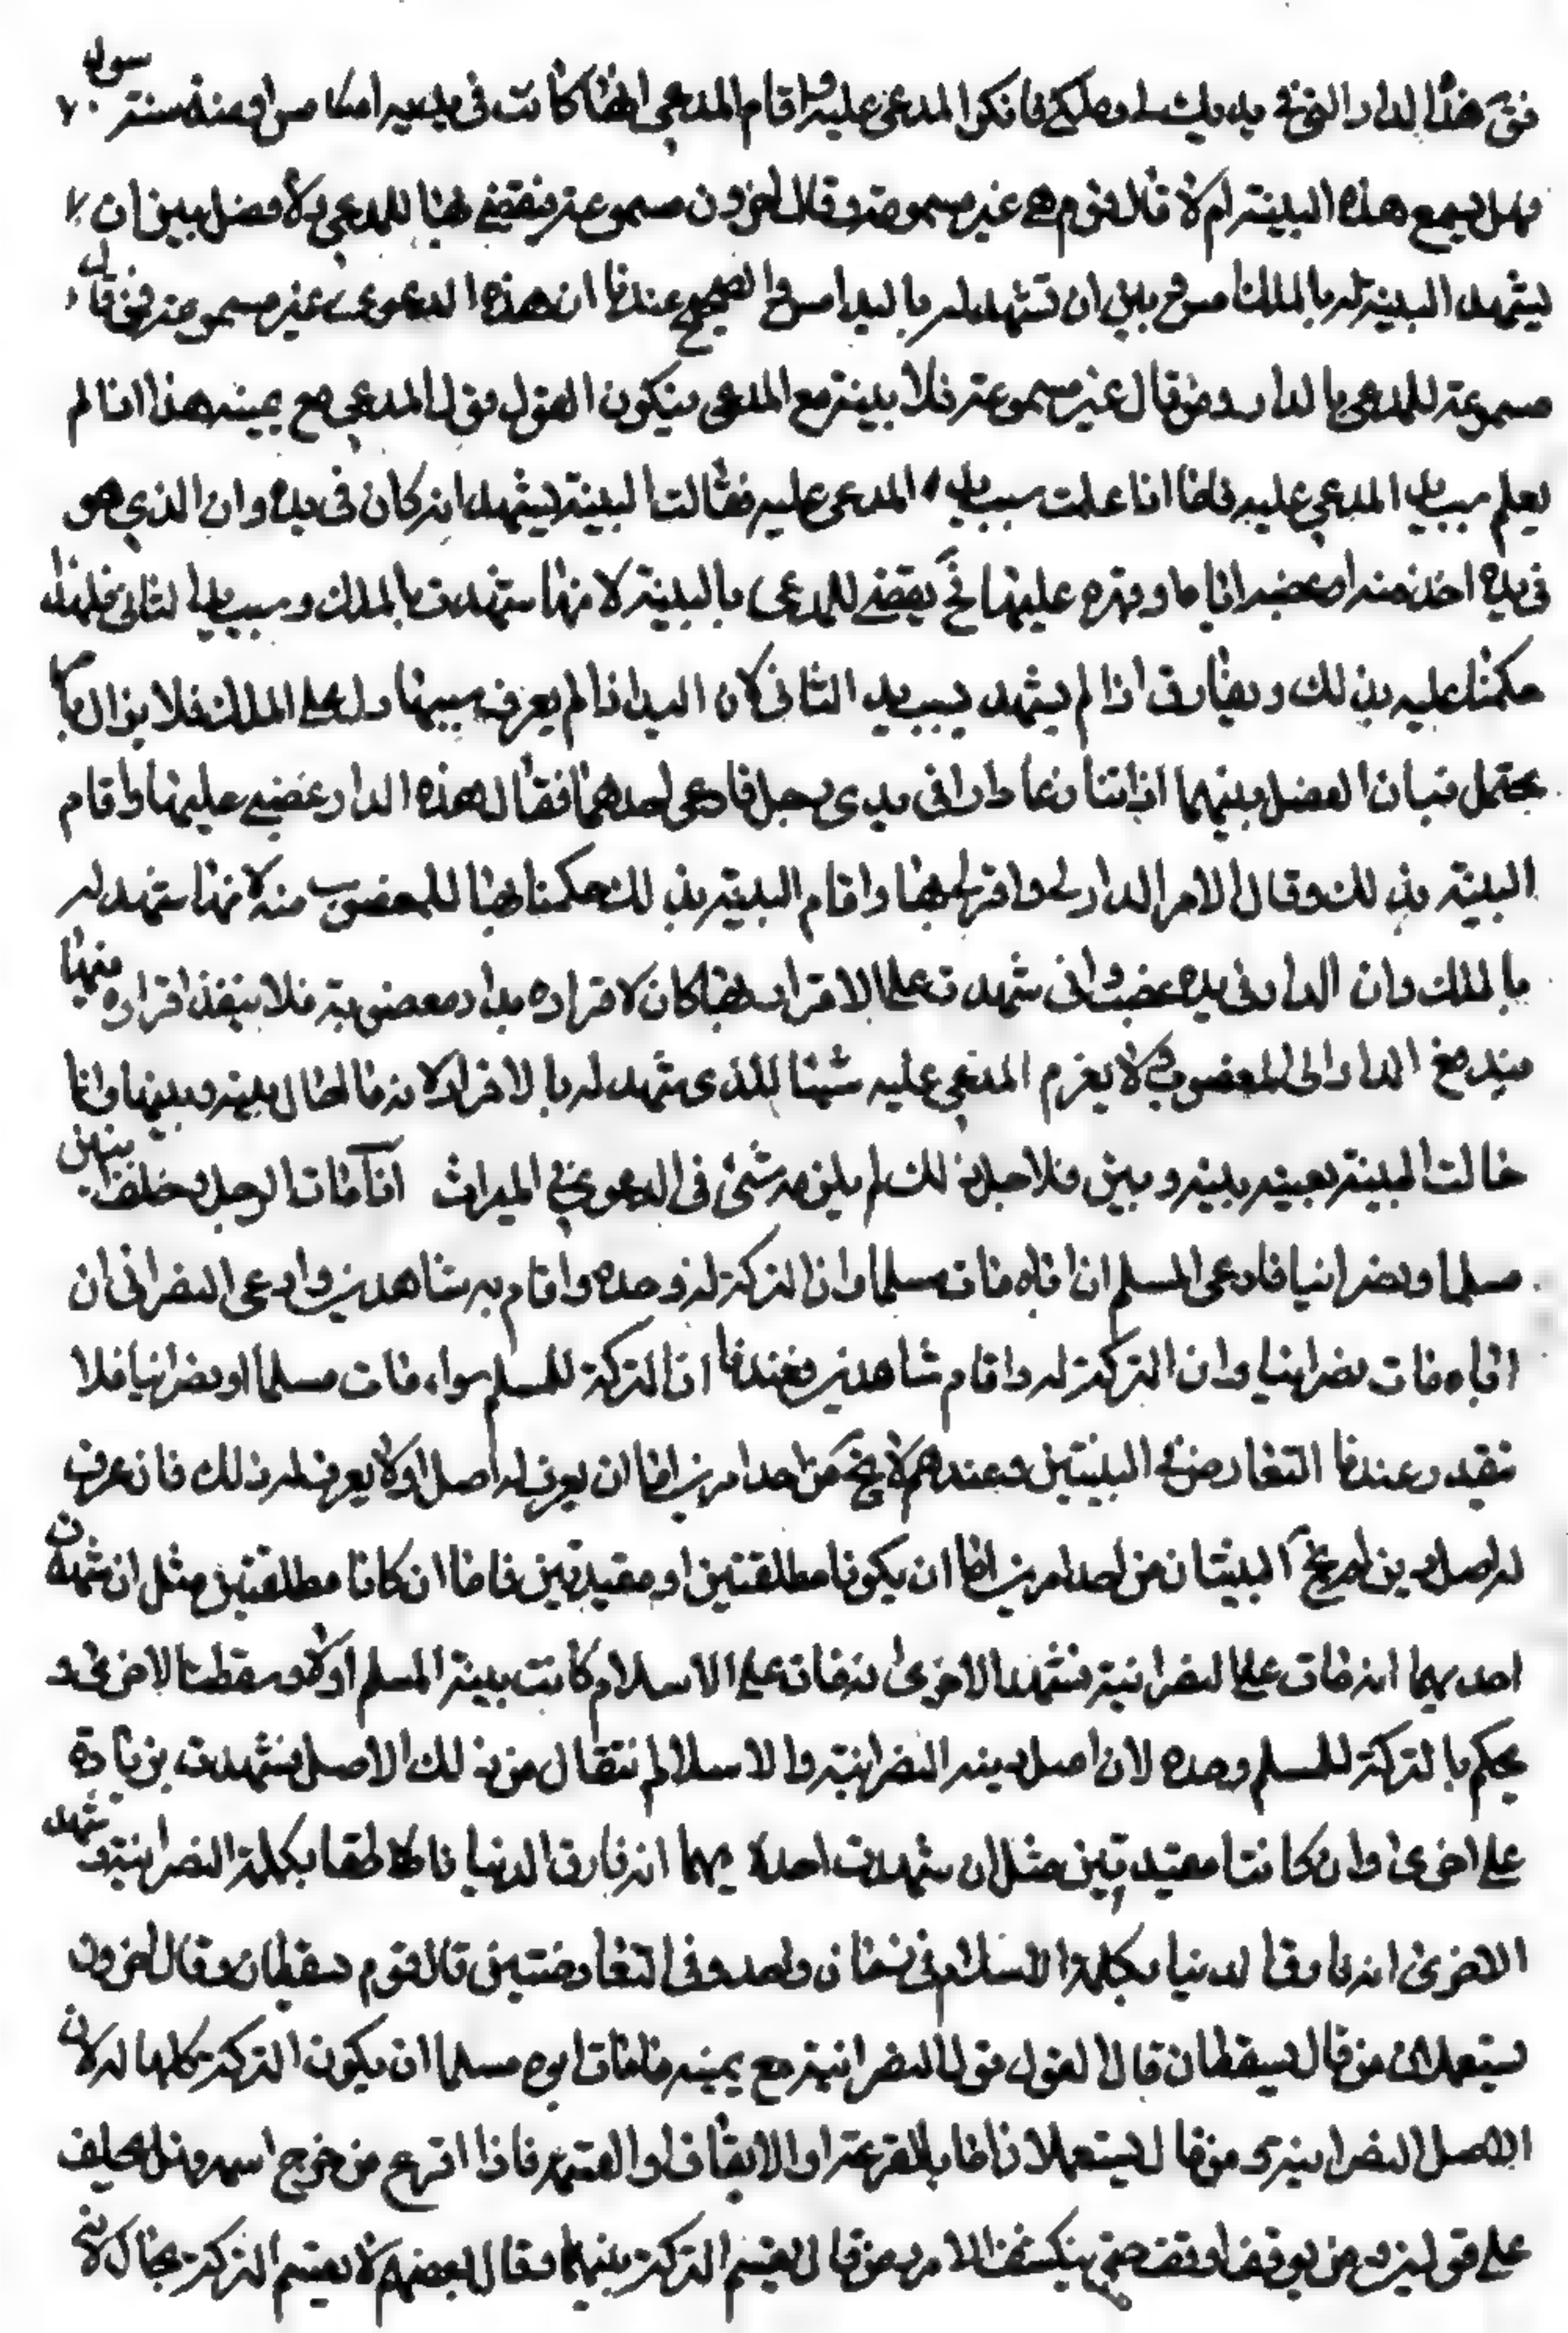 فق هذا الدار التي في يديك لي وملكي فانكر المدعى عليه واقام المدعي انها كانت في يديه امس او منذ سنة سواء
فهل يسمع هذه البينة ام لا قال قوم هي غير مسموعة وقال اخرون مسموعة فنقضي بها للمدعي ولا فصل بين ان
يشهد البينة له بالملك امس وبين ان تشهد له باليد امس والصحيح عندنا ان هذه الدعوى غير مسموعة فمن قال
مسموعة للمدعي بالدار ومن قال غير مسموعة فلا بينة مع المدعي فيكون القول قول المدعى مع يمينه هذا اذا لم
يعلم سبب يد المدعي عليه فاما اذا علمت سبب يد المدعى عليه فقالت البينة يشهد انه كان في يده وان الذي هو
في يده اخذه منه او غصبه اياها وقهره عليها فح يقضي للمدعي بالبينة لانها شهدت بالملك وسبب يد الثاني فلهذا
حكمنا عليه بذلك ويفارق اذا لم يشهد بسبب يد الثاني لان اليد اذا لم يعرف سببها دل على الملك فلا يزال بما
يحتمل فبان الفصل بينهما اذا تنازعا دارا في يدي رجل فادعى احدهما فقال هذه الدار غصبني عليها واقام
البينة بذلك وقال الاخر الدار لي واقر لي بها واقام البينة بذلك حكمنا بها للمغصوب منه لانها شهدت له
بالملك وان الدار في يده غصب والتي شهدت على الاقرار بها كان لاقراره بدار مغصوبة فلا ينفذ اقراره فيها
فيدفع الدار الى المغصوب ولا يغرم المدعي عليه شيئا للذي شهد له بالاقرار لانه ما احال بينه وبينها وانما
حالت البينة بعينه بينه وبين فلاجل ذلك لم يلزمه شئ في الدعوى في الميراث اذا مات الرجل وخلف ابنين
مسلما ونصرانيا فادعى المسلم ان اباه مات مسلما وان التركة له وحده واقام به شاهدين وادعى النصراني ان
اباه مات نصرانيا وان التركة له واقام شاهدين فعندنا ان التركة للمسلم سواء مات مسلما او نصرانيا فلا
نقدر عندنا التعارض في البينتين وعندهم لا يخ من احد امرين اما ان يعرف له اصل او لا يعرف له ذلك فان عرف
له اصل دين لم يخ البينتان من احد امرين اما ان يكونا مطلقتين او مقيدتين فاما ان كانا مطلقتين مثل ان شهدت
احديهما انه مات على النصرانية فشهد الاخرى انه مات على الاسلام كانت بينة المسلم اولى وسقطت الاخرى و
يحكم بالتركة للمسلم وحده لان اصل دينه النصرانية والاسلام انتقال من ذلك الاصل فشهدت بزيادة
على اخرى وان كانتا مقيدتين مثل ان شهدت احديهما انه فارق الدنيا ناطقا بكلمة النصرانية وشهد
الاخرى انه فارق الدنيا بكلمة الاسلام في زمان واحد وفي التعارضتين قال قوم يسقطان وقال اخرون
يستعملان من قال يسقطان قال القول قول النصرانية مع يمينه ما مات ابوه مسلما ان يكون التركة كلها له لان
الاصل النصرانية ومن قال يستعملان اما بالقرعة او الايقاف او القسمة فاذا اقرع من خرج اسمه وهل يحلف
على قولين ومن يوقف اوقف حتى ينكشف الامر ومن قال يقسم التركة بينهما وقال بعضهم لا يقسم التركة بحال لانه